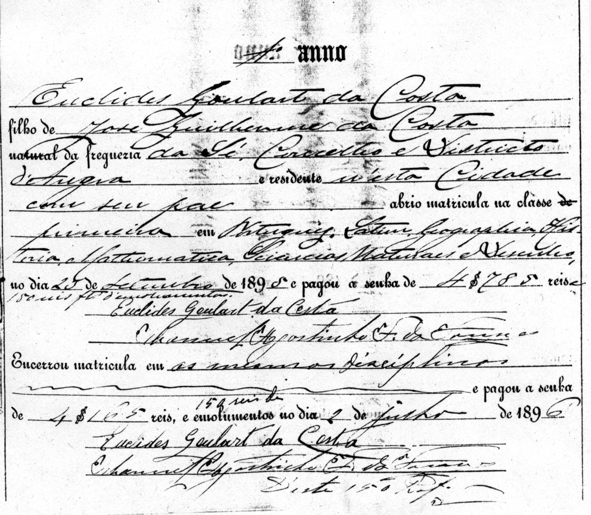 anno
Euclides Goulart da Costa
filho de José Guilherme da Costa
natural da freguezia da Sé, Concelho e Districto
d'Angra e residente n'esta Cidade
com seu pae abrio matricula na classe de
primeira em Portuguez, Latim, Geographia, His-
toria, Mathematica, Sciencias Naturaes e Desenho,
no dia de Setembro de 1895 e pagou á senha de 4$785 reis e
150 reis d'emolumentos.
Euclides Goulart da Costa
Manuel Agostinho F. da
Encerrou matricula em as mesmas disciplinas
e pagou a senha
150 reis de
de 4$165 reis, e emolumentos no dia 2 de Julho de 1896
Euclides Goulart da Costa
Manuel Agostinho F. da
D'esta 150